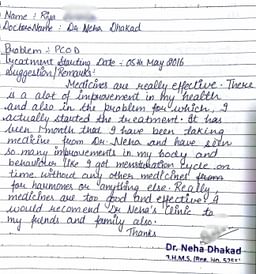 Name : Riya
Doctor Name : Dr. Neha Dhakad
Problem : PCOD
Treatment Starting Date : 05th May 2016
Suggestion/Remarks:
Medicines are really effective. There
is a alot of improvement in my health
and also in the problem for which I
actually started the treatment. It has
been 1 month that I have been taking
medicine from Dr. Neha and have seen
so many improvements in my body and
behaviour like I got menstruation cycle on
time without any other medicines from
for harmones or anything else. Really
medicines are too good and effective. I
would recomend Dr. Neha's clinic to
my friends and family also.
Thanks
Dr. Neha Dhakad
B.H.M.S. (Reg. No.